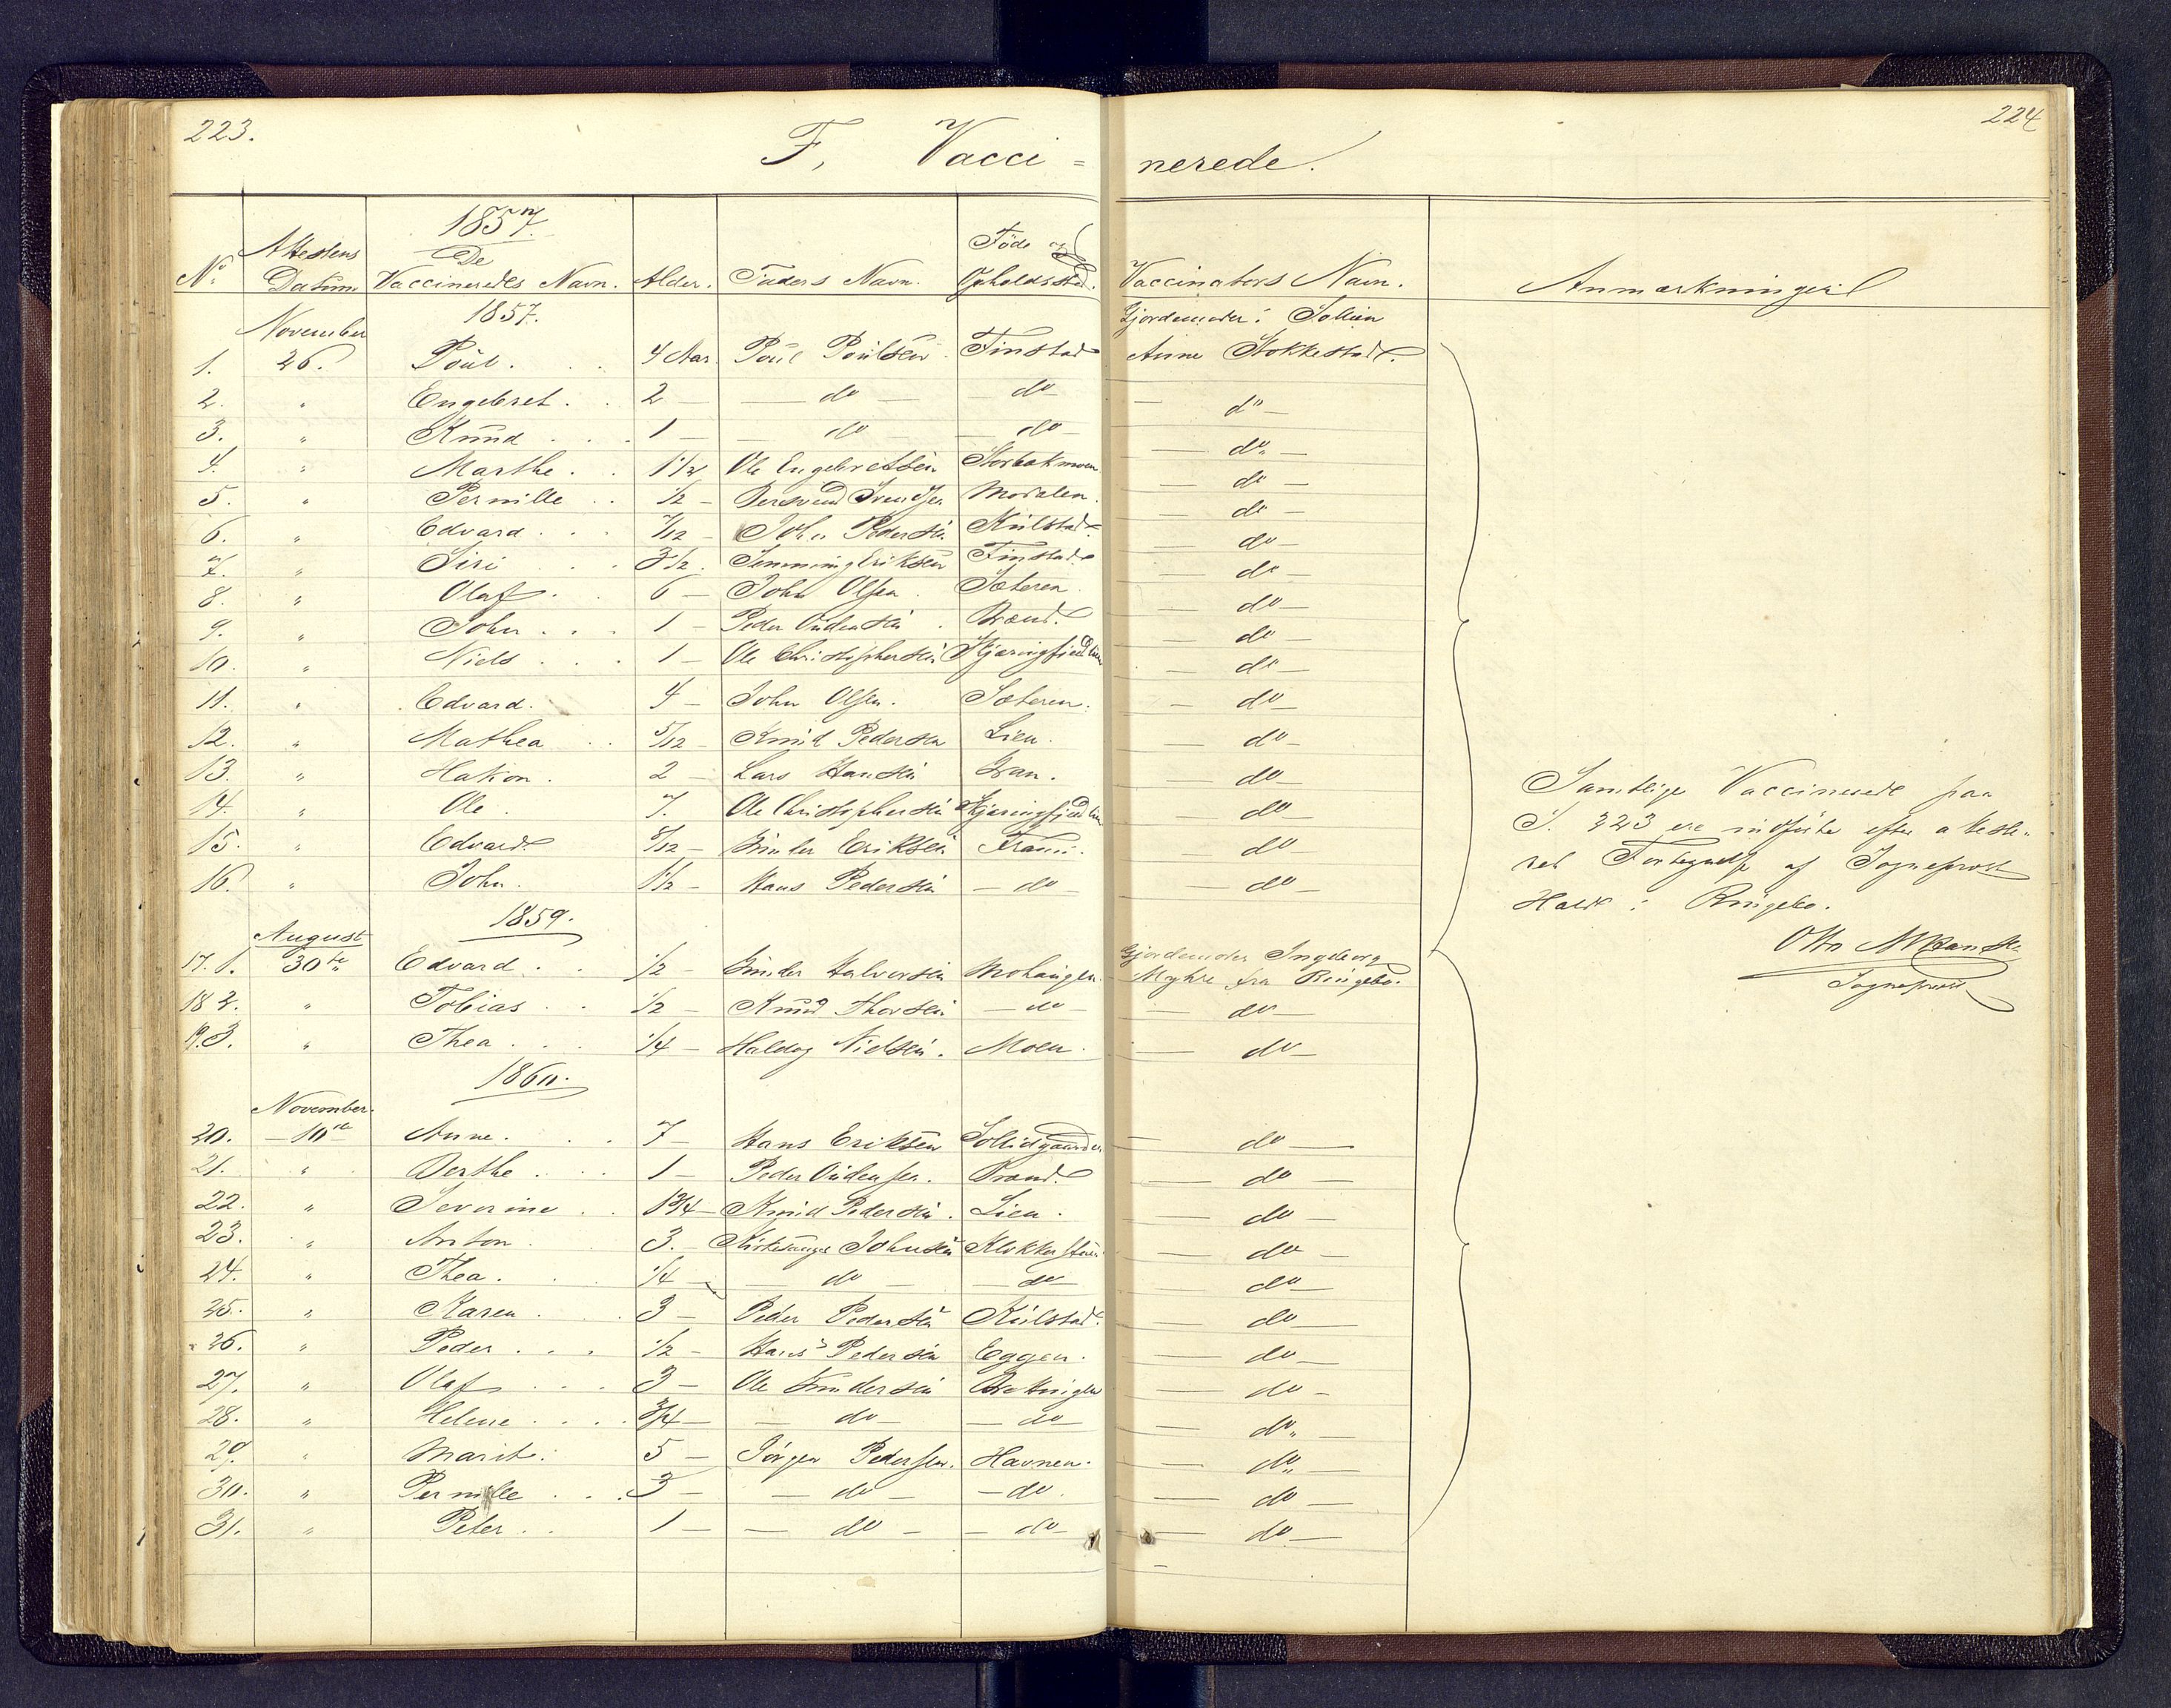 223.
224
F, Vacci = nerede.
1857.
No. Attestens Datum De Vaccineredes Navn. Alder. Faders Navn. Føde og Opholdssted. Vaccinators Navn. Anmærkninger
November 1857. Gjordemoder i Sollien
1. 26. Poul. 4 Aar. Poul Poulsen Finstad Anne Stokkestad.
2. " Engebret. 2 — do — do — do —
3. " Knud 1 — do — do — do —
4. " Marthe. 1 1/2 Ole Engebretsen Storbækmoen — do —
5. " Pernille 1/2 — Svendsen Modalen. — do —
6. " Edvard 7/12 — John Pedersen Kulstad — do —
7. " Siri 3 1/2. Simming Eriksen Finstad — do —
8. " Olaf. 6 — John Olsen. Sæteren. — do —
9. " John. 1 — Peder Oudensen. Brænd. — do —
10. " Niels 1 — Ole Christophersen Kjæringfjeldlien — do —
11. " Edvard. 4 — John Olsen. Sæteren. — do —
12. " Mathea 5/12 — Knud Pedersen Lien. — do —
13. " Hakon. 2 — Lars Hansen — do —
14. " Ole. 7. Ole Christophersen Kjæringfjeldlien — do —
15. " Edvard 5/12 — Gunder Eriksen — do —
16. " John. 1 1/2 — Hans Pedersen — do — — do —
1859.
August
17. 1. 30te Edvard. 1/2 — Gunder Halvorsen Mohaugen. Gjordemoder Ingeborg Myhre fra Ringebo.
18 2. " Tobias 1/2 — Knud Thorsen — do — — do —
19. 3. " Thea 1/4 — Haldog Nielsen. Moen. — do —
1860.
November
20. — 10de Anne. 7 — Hans Eriksen Sollidgaarden — do —
21. " Berthe 1 — Peder Oudensen. Brænd. — do —
22. " Severine 1 3/4 — Knud Pedersen. Lien. — do —
23. " Anton 3. — Kirkesanger Johnsen — do —
24. " Thea. 1/4 — do — do — do —
25. " Karen 3 — Peder Pedersen Kulstad. — do —
26. " Peder 1/2 — Hans Pedersen Eggen. — do —
27. " Olaf 3 — Ole Gundersen — do —
28. " Helene 3/4 — do — do — do —
29. " Marit. 5 — Jörgen Pedersen. Havnen. — do —
30. " Pernille 3 — do — do. — do —
31. " Peter 1 — do — do — do —
Samtlige Vaccinerede paa
S. 223 ere indførte efter atteste-
ret Fortegnelse af Sogneprest
Hald i Ringebo.
Otto
Sogneprest